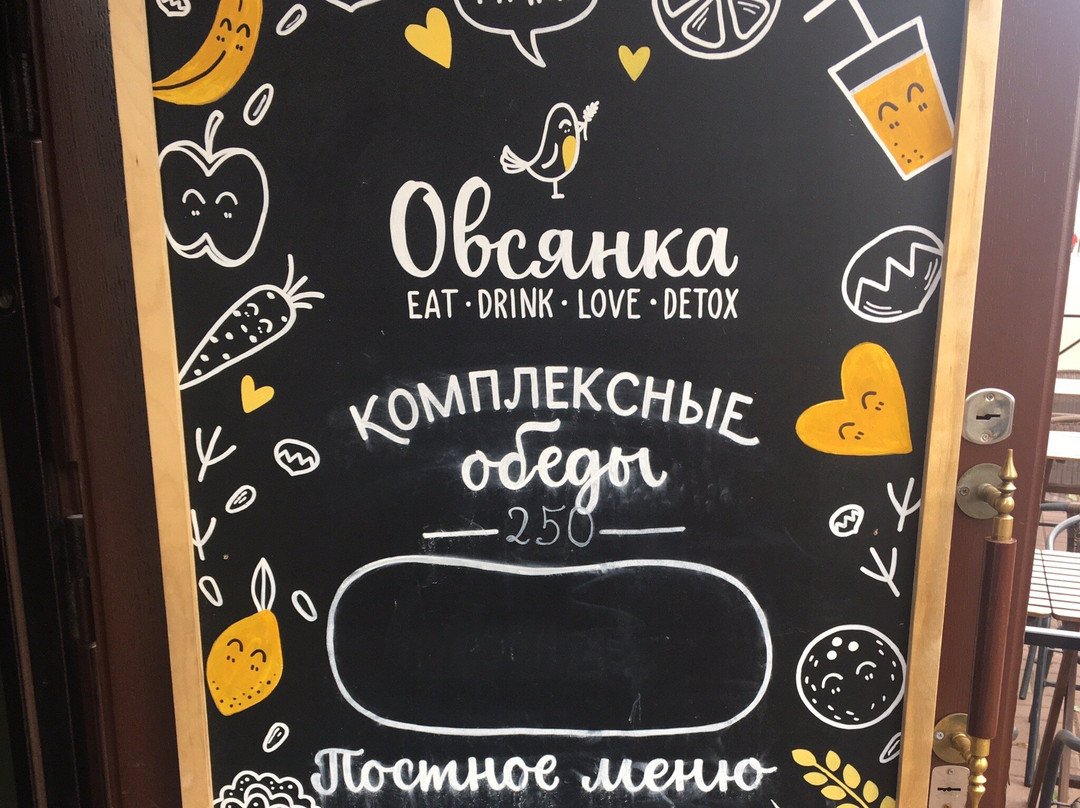 Овсянка
EAT · DRINK · LOVE · DETOX
КОМПЛЕКСНЫЕ
обеды
250
Постное меню